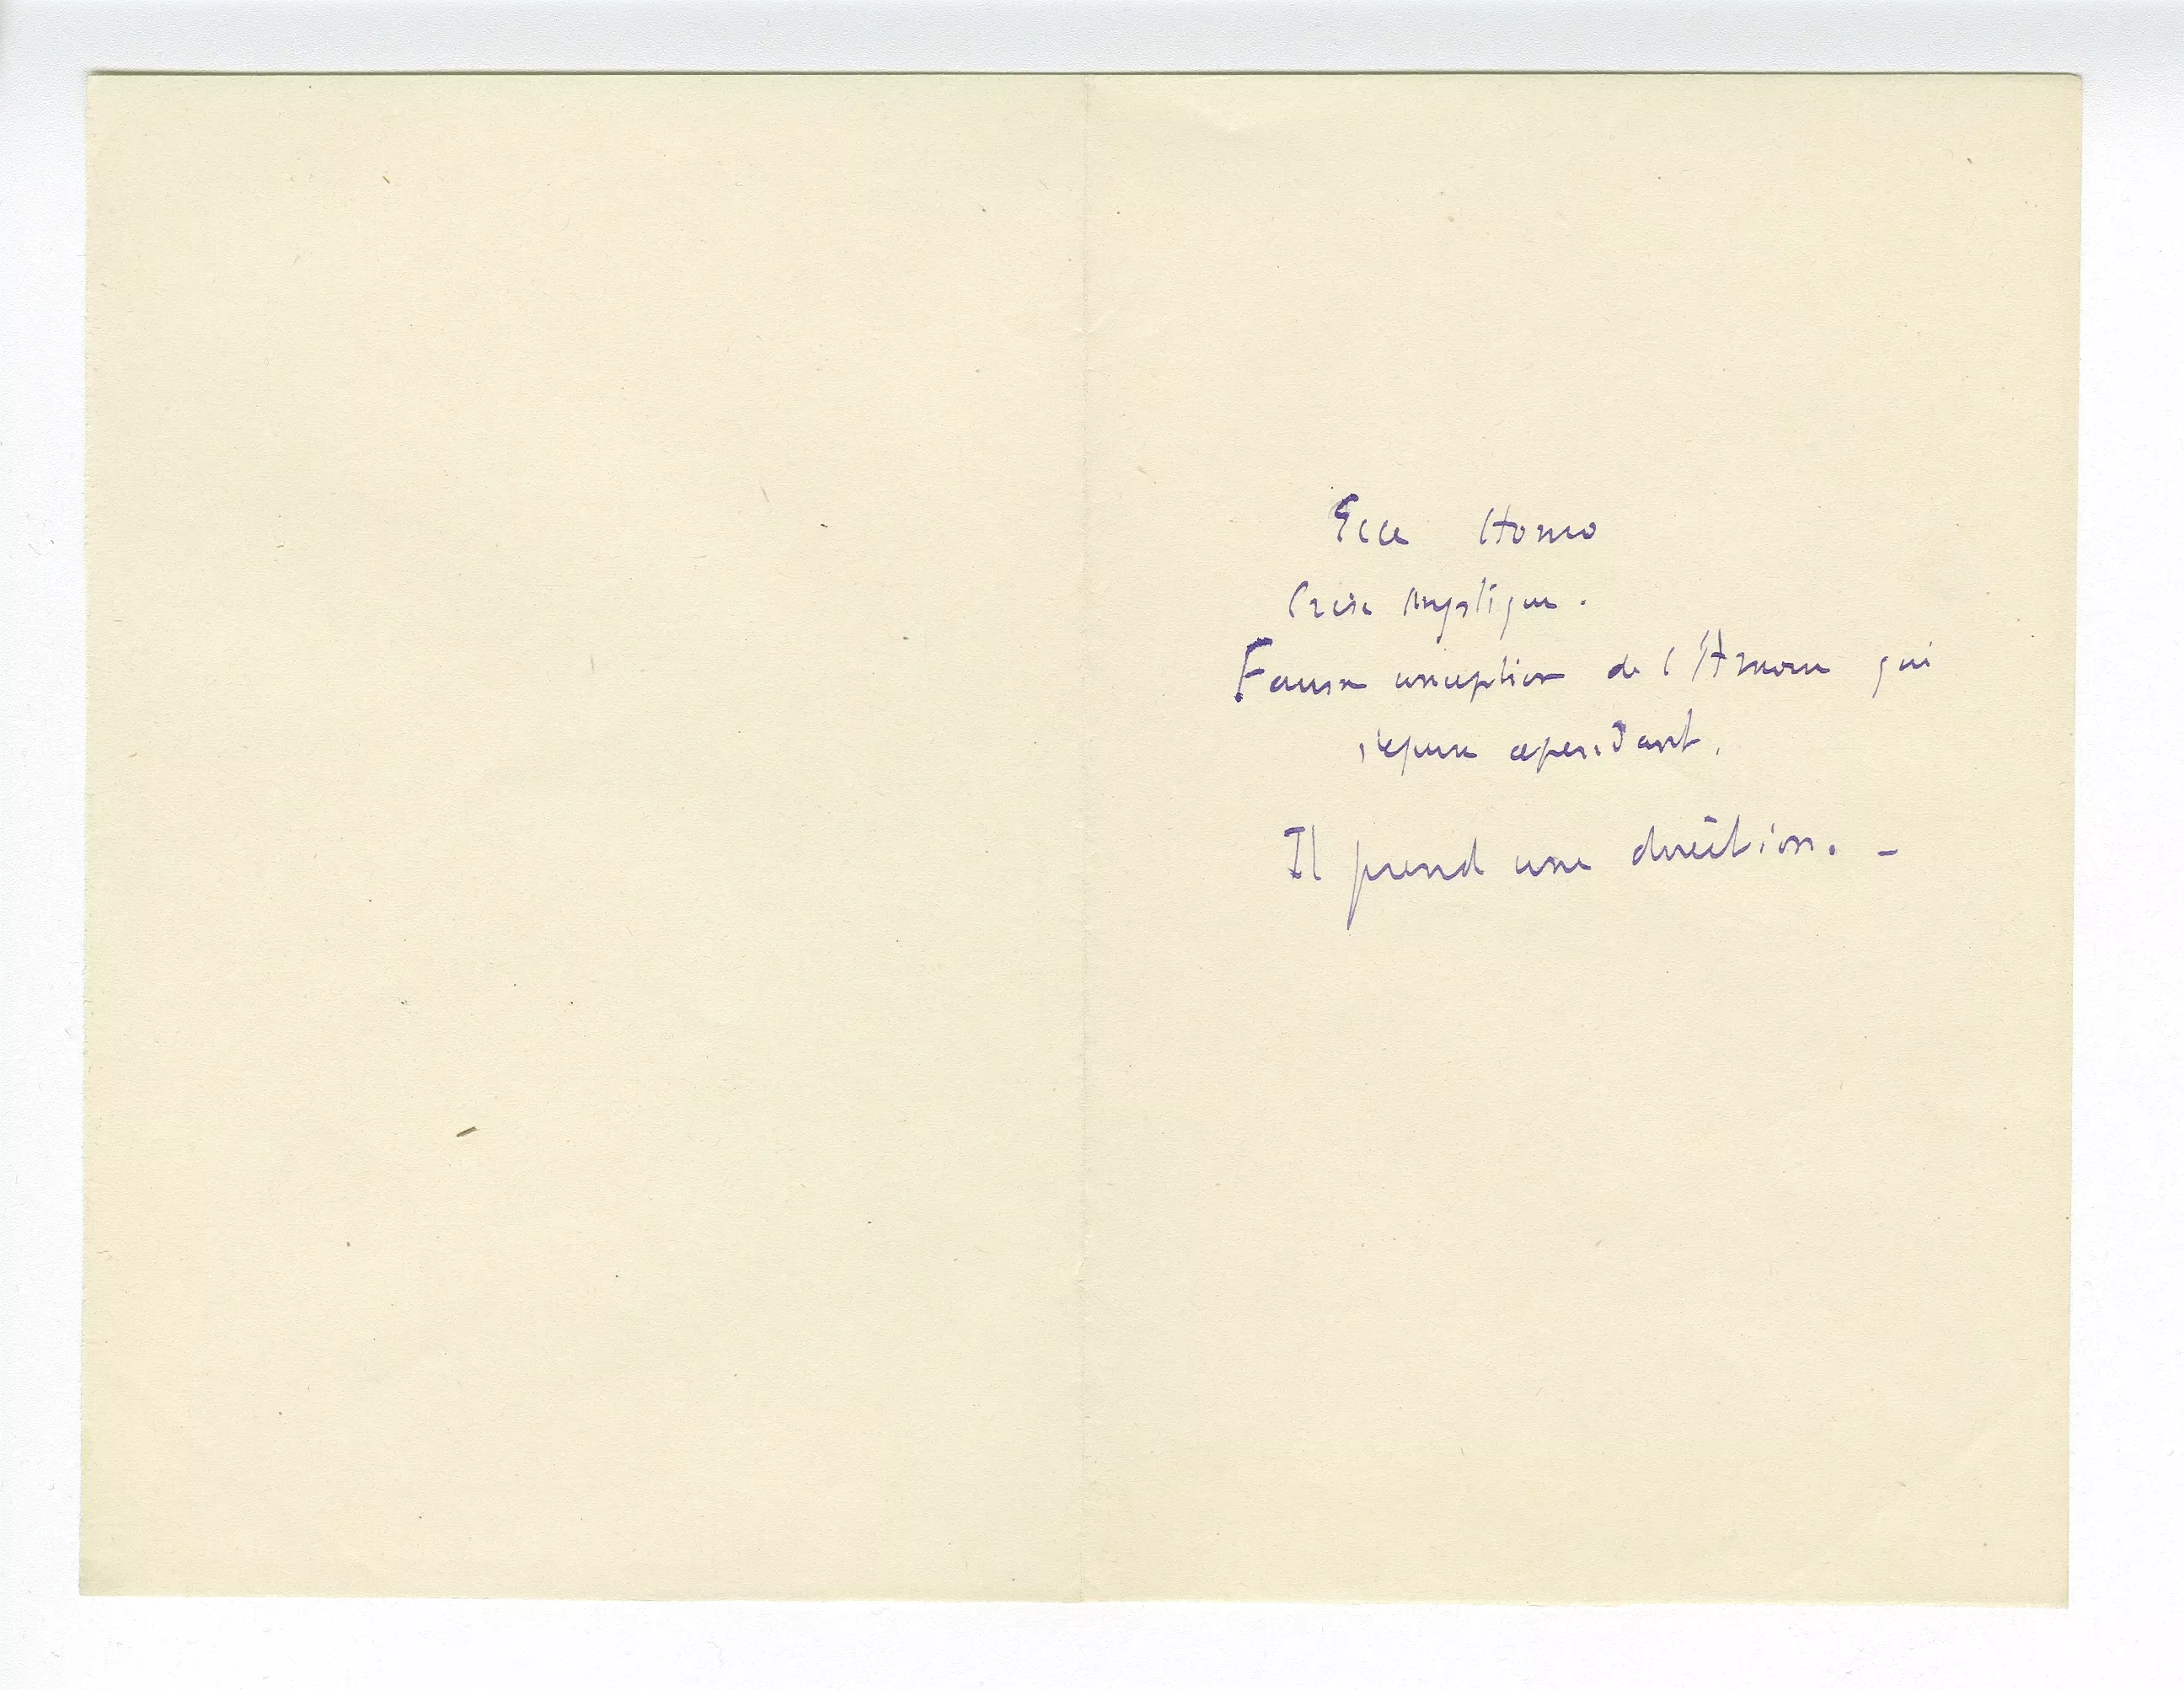 Ecce Homo
Crise mystique.
Fausse conception de l'Amour qui
s'épure cependant.
Il prend une direction. -